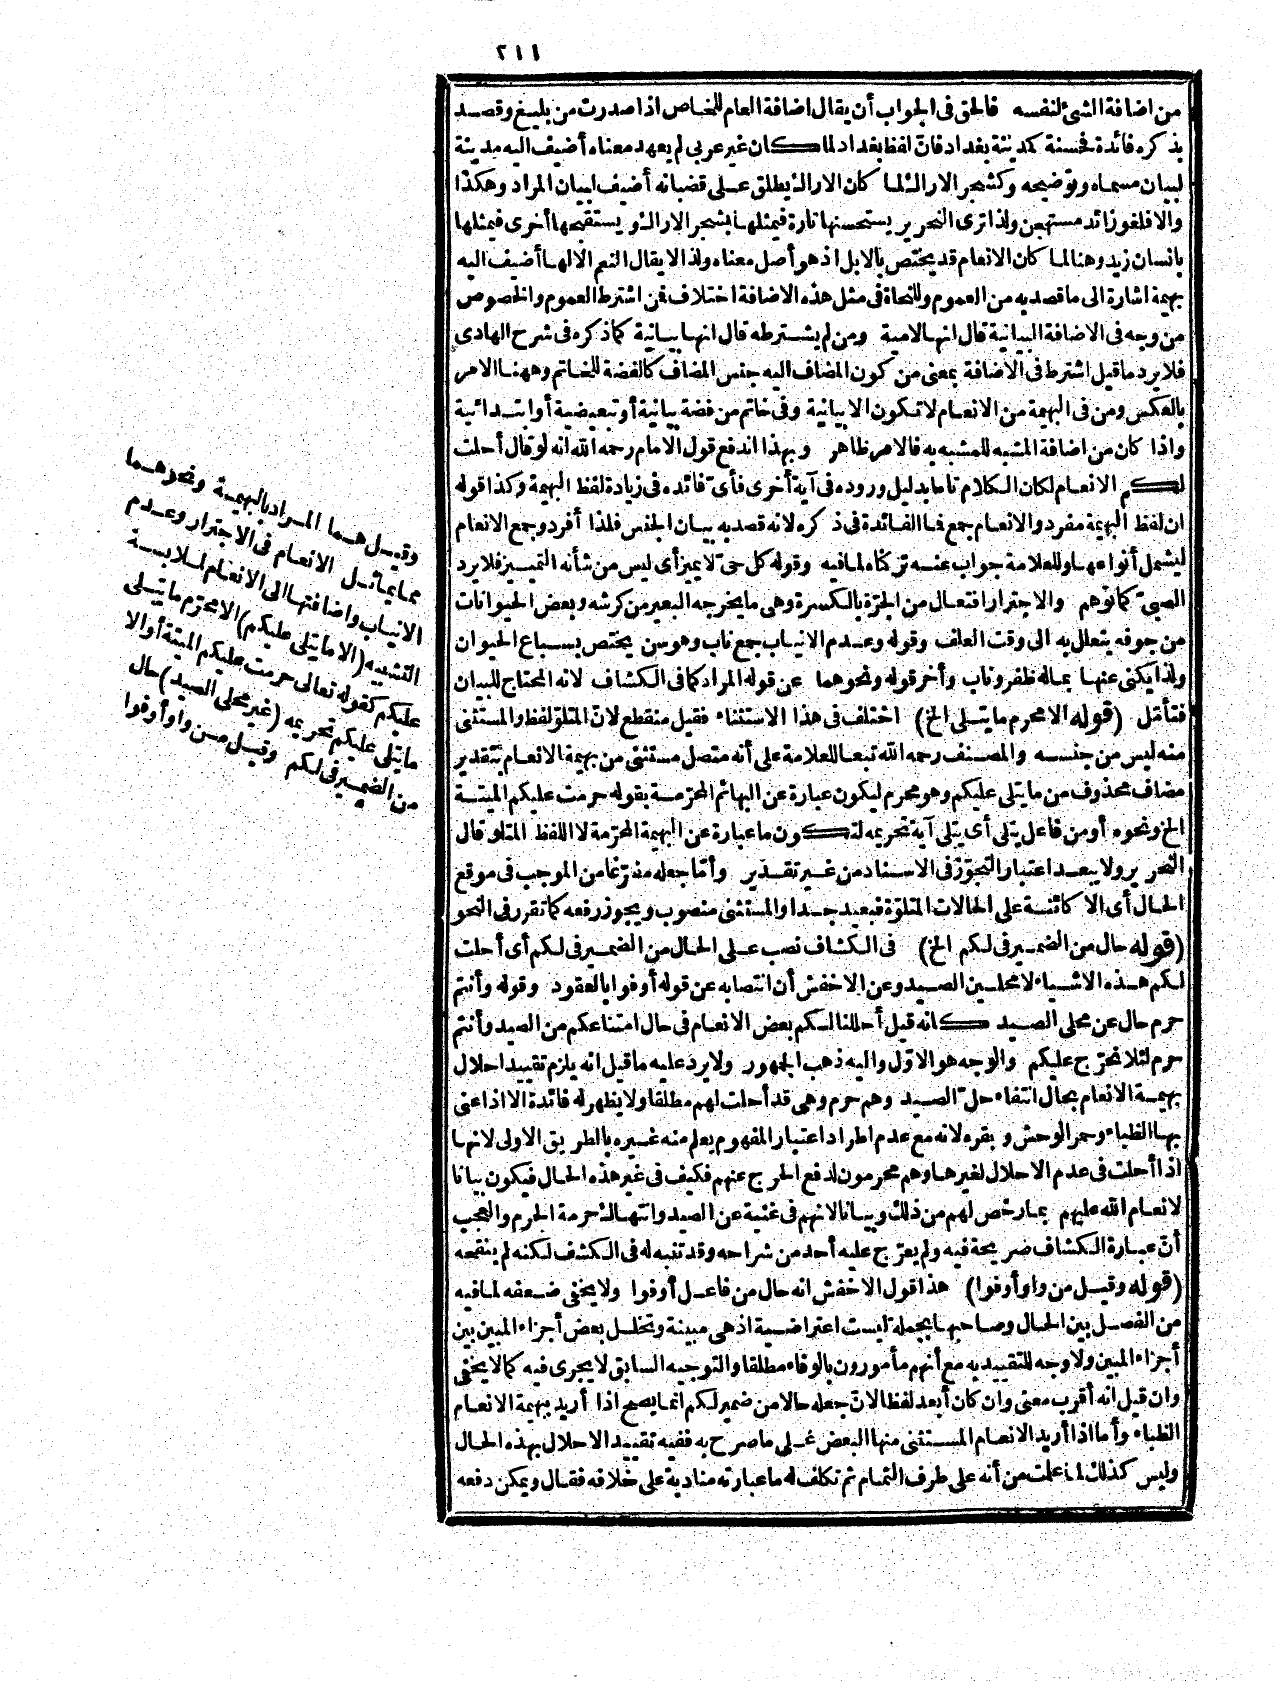 ٢١١
من اضافة الشئ لنفسه فالحق فى الجواب أن يقال اضافة العام للخاص اذا صدرت من بليغ وقصد
بذكره فائدة فحسنة كمدينة بغداد فان لفظ بغداد لما كان غير عربى لم يعهد معناه أضيف اليه مدينة
لبيان مسماه وتوضيحه وكشجر الاراك لما كان الاراك يطلق على قضبانه أضيف لبيان المراد وهكذا
والا فلغو زائد مستهجن ولذا ترى النحرير يستحسنها تارة فيمثلها بشجر الاراك ويستقبحها أخرى فيمثلها
بانسان زيد وهنا لما كان الانعام قد يختص بالابل اذ هو أصل معناه ولذا لا يقال النعم الا لها أضيف اليه
بهيمة اشارة الى ما قصد به من العموم وللنحاة فى مثل هذه الاضافة اختلاف فمن اشترط العموم والخصوص
من وجه فى الاضافة البيانية قال انها لامية ومن لم يشترطه قال انها بيانية كما ذكره فى شرح الهادى
فلا يرد ما قيل اشترط فى الاضافة بمعنى من كون المضاف اليه جنس المضاف كالفضة للخاتم وههنا الامر
بالعكس ومن فى البهيمة من الانعام لا تكون الا بيانية وفى خاتم من فضة بيانية أو تبعيضية أو ابتدائية
واذا كان من اضافة المشبه للمشبه به فالامر ظاهر وبهذا اندفع قول الامام رحمه الله انه لو قال أحلت
لكم الانعام لكان الكلام تاما بدليل وروده فى آية أخرى فأى فائده فى زيادة لفظ البهيمة وكذا قوله
ان لفظ البهيمة مفرد والانعام جمع فما الفائدة فى ذكره لانه قصد به بيان الجنس فلذا أفرد وجمع الانعام
ليشمل أنواعها وللعلامة جواب عنه تركناه لما فيه وقوله كل حى لا يميز أى ليس من شأنه التمييز فلا يرد
الصبى كما توهم والاجترار افتعال من الجرّة بالكسرة وهى ما يخرجه البعير من كرشه وبعض الحيوانات
من جوفه يتعلل به الى وقت العلف وقوله وعدم الانياب جمع ناب وهو سن يختص بسباع الحيوان
ولذا يكنى عنها بماله ظفر وناب وأخر قوله ونحوهما عن قوله المراد كما فى الكشاف لانه المحتاج للبيان
فتأمّل (قوله الا محرم ما يتلى الخ) اختلف فى هذا الاستثناء فقيل منقطع لانّ المتلوّ لفظ والمستثنى
منه ليس من جنسه والمصنف رحمه الله تبعا للعلامة على أنه متصل مستثنى من بهيمة الانعام بتقدير
مضاف محذوف من ما يتلى عليكم وهو محرم ليكون عبارة عن البهائم المحرّمة بقوله حرمت عليكم الميتة
الخ ونحوه أو من فاعل يتلى أى يتلى آية تحريمه لتكون ما عبارة عن البهيمة المحرّمة لا اللفظ المتلو قال
النحرير ولا يبعد اعتبار التجوّز فى الاسناد من غير تقدير وأمّا جعله مفرّغا من الموجب فى موقع
الحال أى الا كائنة على الحالات المتلوّة فبعيد جدا والمستثنى منصوب ويجوز رفعه كما تقرر فى النحو
(قوله حال من الضمير فى لكم الخ) فى الكشاف نصب على الحال من الضمير فى لكم أى أحلت
لكم هذه الاشياء لا محلين الصيد وعن الاخفش أن انتصابه عن قوله أوفوا بالعقود وقوله وأنتم
حرم حال عن محلى الصيد كانه قيل أحللنا لكم بعض الانعام فى حال امتناعكم من الصيد وأنتم
حرم لئلا نحرّج عليكم والوجه هو الاوّل واليه ذهب الجمهور ولا يرد عليه ما قيل انه يلزم تقييد احلال
بهيمة الانعام بحال انتفاء حلّ الصيد وهم حرم وهى قد أحلت لهم مطلقا ولا يظهر له فائدة الا اذا عنى
بها الظباء وحمر الوحش وبقره لانه مع عدم اطراد اعتبار المفهوم يعلم منه غيره بالطريق الاولى لانها
اذا أحلت فى عدم الاحلال لغيرها وهم محرمون لدفع الحرج عنهم فكيف فى غير هذه الحال فيكون بيانا
لانعام الله عليهم بما رخص لهم من ذلك وبيانا لانهم فى غنية عن الصيد وانتهاك حرمة الحرم والعجب
أنّ عبارة الكشاف صريحة فيه ولم يعرّج عليه أحد من شراحه وقد تنبه له فى الكشف لكنه لم ينقحه
(قوله وقيل من واو أوفوا) هذا قول الاخفش انه حال من فاعل أوفوا ولا يخفى ضعفه لما فيه
من الفصل بين الحال وصاحبها بجملة ليست اعتراضية اذ هى مبينة وتخلل بعض أجزاء المبين بين
أجزاء المبين ولا وجه للتقييد به مع أنهم مأمورون بالوفاء مطلقا والتوجيه السابق لا يجرى فيه كما لا يخفى
وان قيل انه أقرب معنى وان كان أبعد لفظا لانّ جعله حالا من ضمير لكم انما يصح اذا أريد ببهيمة الانعام
الظباء وأما اذا أريد الانعام المستثنى منها البعض على ما صرح به ففيه تقييد الاحلال بهذه الحال
وليس كذلك لما علمت من أنه على طرف الثمام ثم تكلف له ما عبارته منادية على خلافه فقال ويمكن دفعه
وقيل هما المراد بالبهيمة ونحوهما
مما يماثل الانعام فى الاجترار وعدم
الانياب واضافتها الى الانعام لملابسة
التشبيه (الا ما يتلى عليكم) الا محرّم ما يتلى
عليكم كقوله تعالى حرمت عليكم الميتة أو الا
ما يتلى عليكم تحريمه (غير محلى الصيد) حال
من الضمير فى لكم وقيل من واو أوفوا